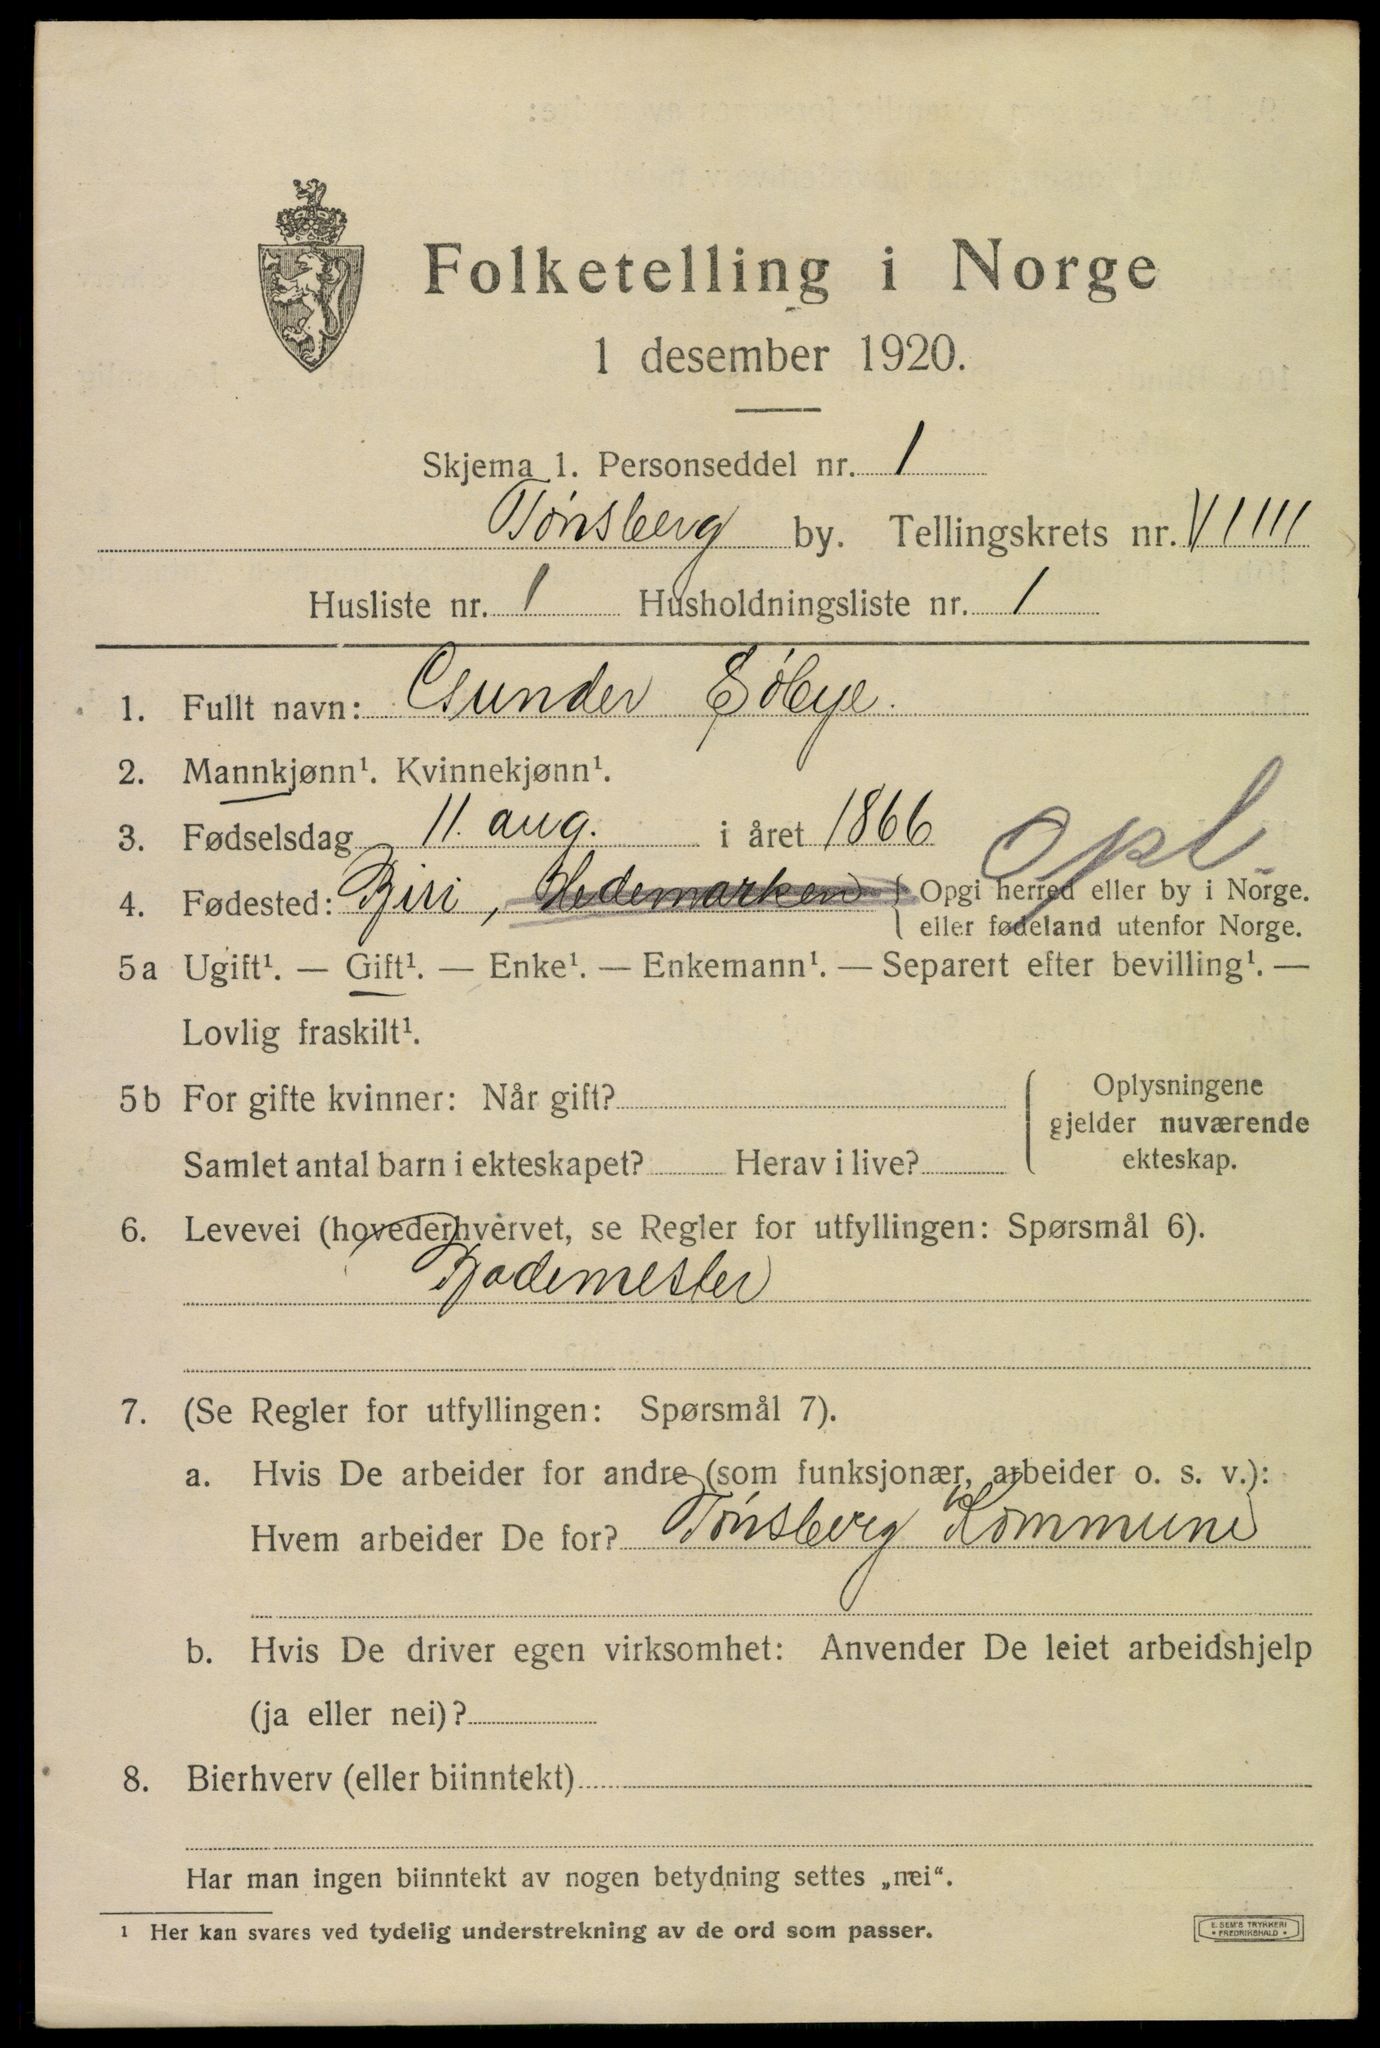 Folketelling i Norge
1 desember 1920.
Skjema 1. Personseddel nr. 1
Tønsberg by. Tellingskrets nr. VIIII
Husliste nr. 1 Husholdningsliste nr. 1
1. Fullt navn: Gunder Søbye.
2. Mannkjønn¹. Kvinnekjønn¹.
3. Fødselsdag 11. aug. i året 1866
Opl.
4. Fødested: Biri, Hedemarken { Opgi herred eller by i Norge.
eller fødeland utenfor Norge.
5a Ugift¹. — Gift¹. — Enke¹. — Enkemann¹. — Separert efter bevilling¹. —
Lovlig fraskilt¹.
5b For gifte kvinner: Når gift?
Samlet antal barn i ekteskapet? Herav i live?
Oplysningene
gjelder nuværende
ekteskap.
6. Levevei (hovederhvervet, se Regler for utfyllingen: Spørsmål 6).
Bademester
7. (Se Regler for utfyllingen: Spørsmål 7).
a. Hvis De arbeider for andre (som funksjonær, arbeider o. s. v.):
Hvem arbeider De for? Tønsberg Kommune
b. Hvis De driver egen virksomhet: Anvender De leiet arbeidshjelp
(ja eller nei)?
8. Bierhverv (eller biinntekt)
Har man ingen biinntekt av nogen betydning settes „nei“.
¹ Her kan svares ved tydelig understrekning av de ord som passer.
E. SEM'S TRYKKERI
FREDRIKSHALD